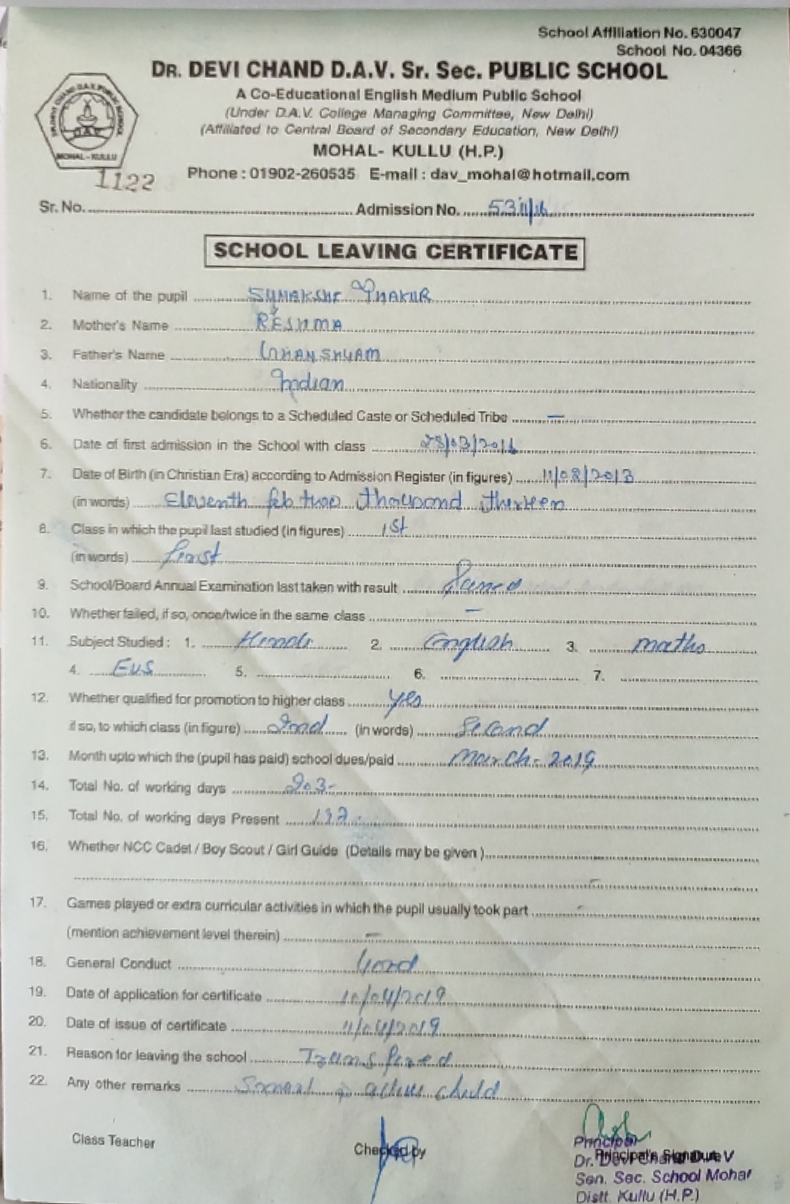 School Affiliation No. 630047
School No. 04366
DR. DEVI CHAND D.A.V. Sr. Sec. PUBLIC SCHOOL
A Co-Educational English Medium Public School
(Under D.A.V. College Managing Committee, New Delhi)
(Affiliated to Central Board of Secondary Education, New Delhi)
MOHAL- KULLU (H.P.)
Phone : 01902-260535 E-mail : dav_mohal@hotmail.com
MOHAL - KULLU
1122
Sr. No. Admission No.
SCHOOL LEAVING CERTIFICATE
1. Name of the pupil THAKUR
2. Mother's Name RESHMA
3. Father's Name GHANSHYAM
4. Nationality Indian
5. Whether the candidate belongs to a Scheduled Caste or Scheduled Tribe —
6. Date of first admission in the School with class
7. Date of Birth (in Christian Era) according to Admission Register (in figures) 11/02/2013
(in words) Eleventh feb two thousand thirteen
8. Class in which the pupil last studied (in figures) 1st
(in words) first
9. School/Board Annual Examination last taken with result Passed
10. Whether failed, if so, once/twice in the same class —
11. Subject Studied : 1. Hindi 2. English 3. maths
4. EVS 5. 6. 7.
12. Whether qualified for promotion to higher class yes
if so, to which class (in figure) 2nd (in words) Second
13. Month upto which the (pupil has paid) school dues/paid March- 2019
14. Total No. of working days 203-
15. Total No. of working days Present
16. Whether NCC Cadet / Boy Scout / Girl Guide (Details may be given )
—
17. Games played or extra curricular activities in which the pupil usually took part -
(mention achievement level therein) —
18. General Conduct Good
19. Date of application for certificate 10/04/2019
20. Date of issue of certificate 11/04/2019
21. Reason for leaving the school
22. Any other remarks child
Class Teacher Checked by Principal's Signature
Principal
Dr. Devi Chand D.A.V
Sen. Sec. School Mohal
Distt. Kullu (H.P.)